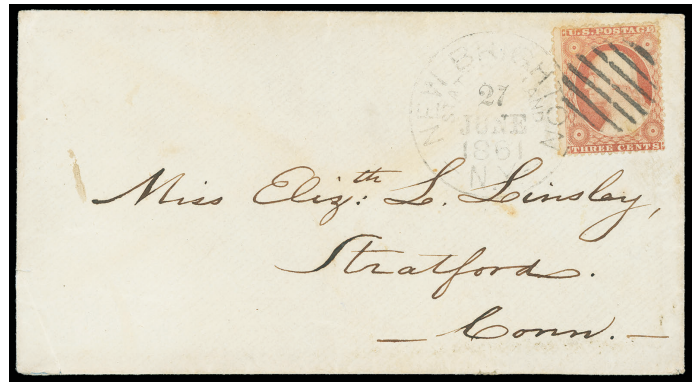 U.S. POSTAGE
THREE CENTS
NEW BRIGHTON
27
JUNE
1861
N.Y.
Miss Eliz:th L. Linsley,
Stratford.
— Conn. —